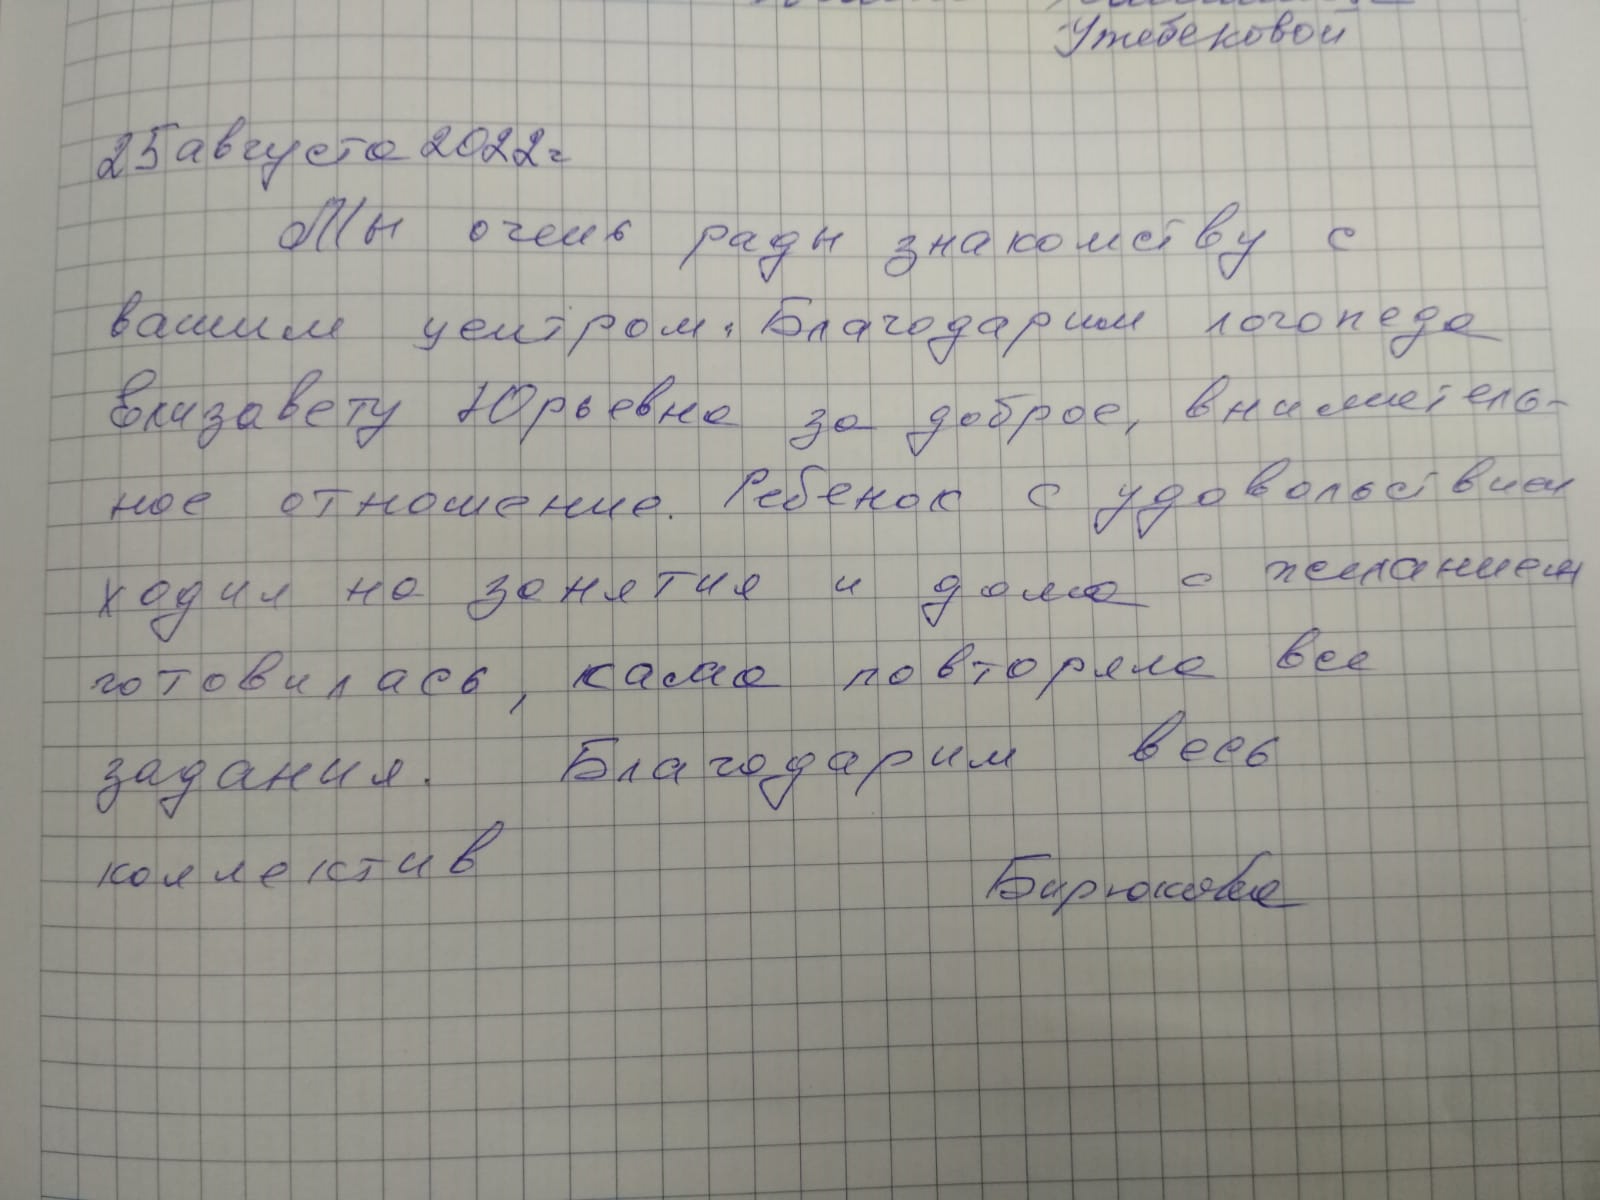 Утебековой
25 августа 2022г
Мы очень рады знакомству с
вашим центром. Благодарим логопеда
Елизавету Юрьевна за доброе, вниматель-
ное отношение. Ребенок с удовольствием
ходил на занятия и дома с желанием
готовилась, сама повторяла все
задания. Благодарим весь
коллектив
Бирюкова